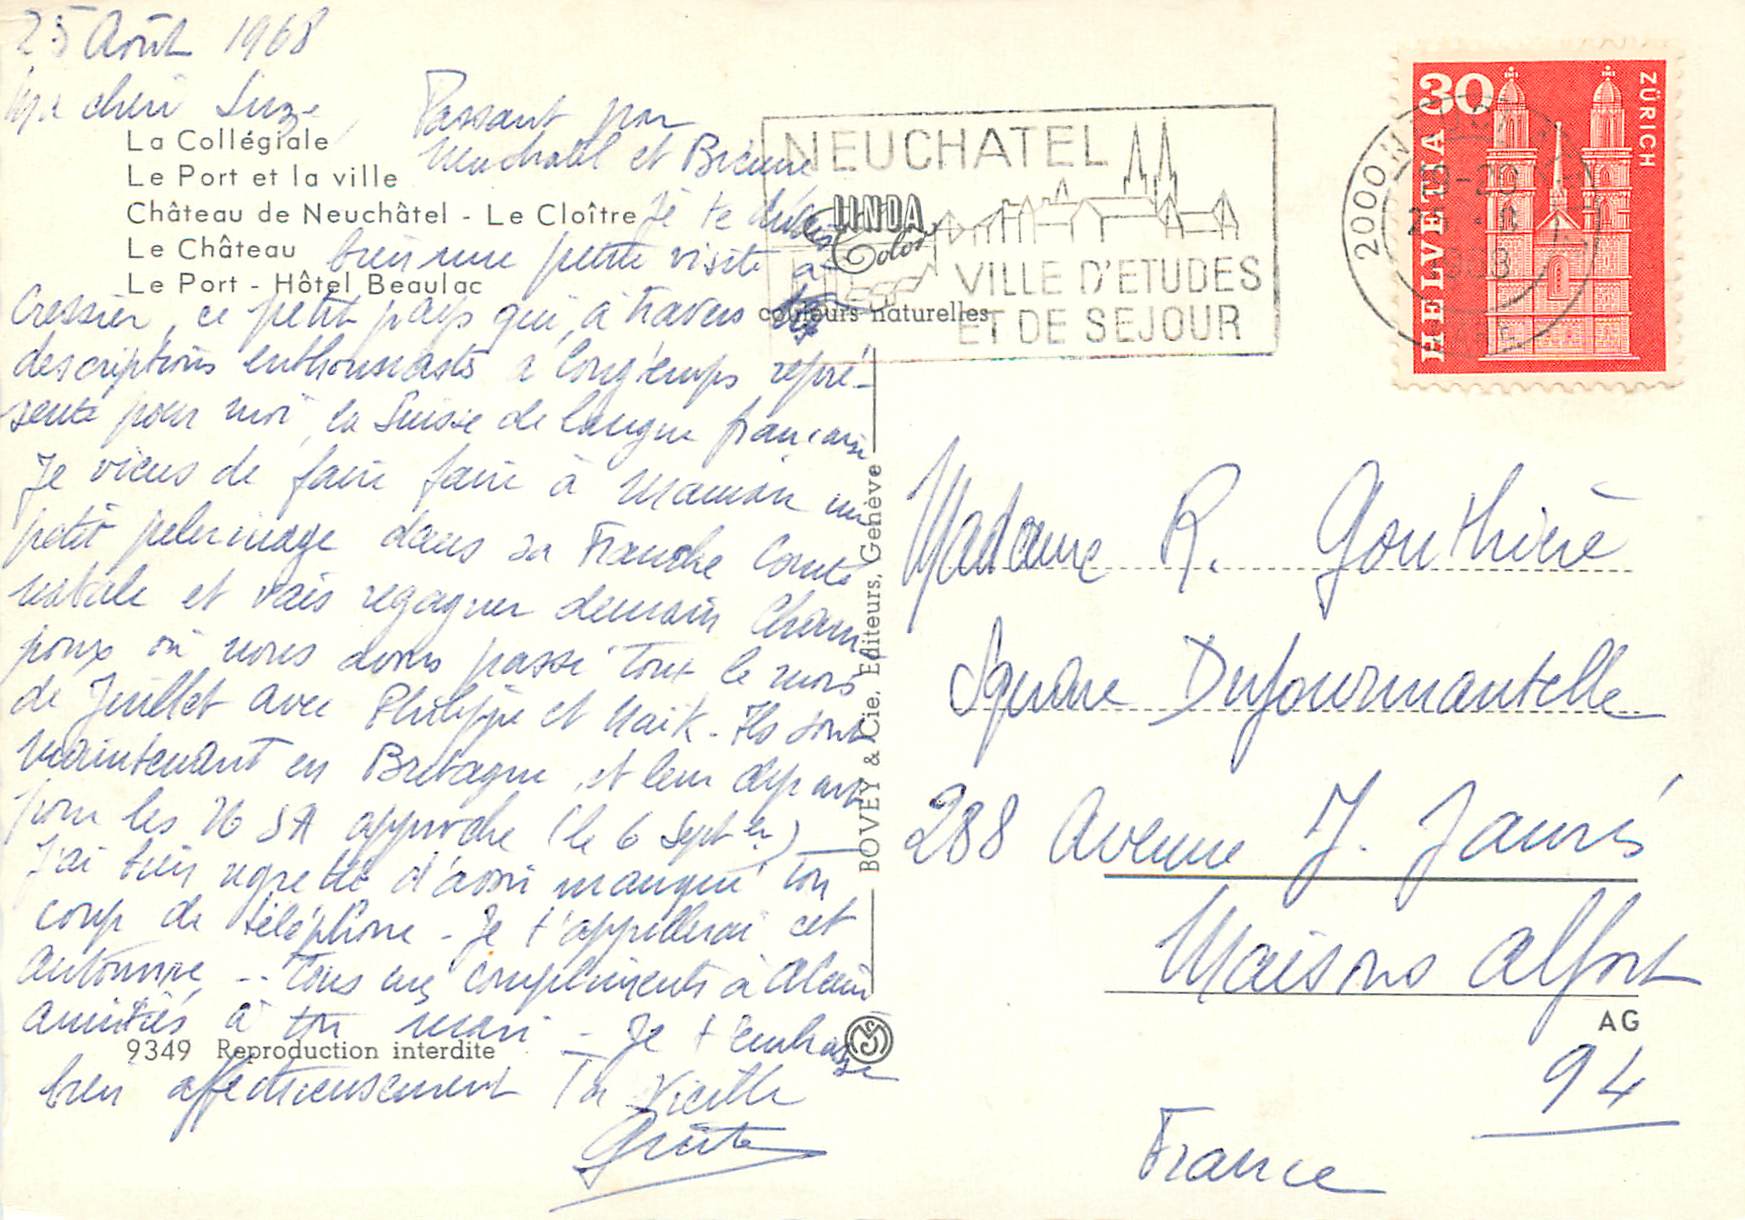 25 Août 1968
Ma cheri Suze, Passant par
Neuchatel et Brienne
Je te devais
bien une petite visite à
Cressier, ce petit pays qui, à travers tes
descriptions enthousiastes a longtemps repré-
senté pour moi la Suisse de langue française
Je viens de faire faire à Maman un
petit pelerinage dans sa Franche Comté
natale et vais regagner demain Cham
poux où nous avons passé tout le mois
de Juillet avec Philippe et Maïk. Ils sont
maintenant en Bretagne, et leur départ
pour les USA approche (le 6 Septbre) —
J'ai bien regretté d'avoir manqué ton
coup de téléphone - Je t'appellerai cet
Automne -- Tous mes compliments à Alain
Amitiés à ton mari - Je t'embrasse
bien affectueusement Ta Vieille
La Collégiale
Le Port et la ville
Château de Neuchâtel - Le Cloître
Le Château
Le Port - Hôtel Beaulac
LINDA
Color
couleurs naturelles
BOVEY & Cie, Editeurs, Genève
9349 Reproduction interdite
NEUCHATEL
VILLE D'ETUDES
ET DE SEJOUR
30
HELVETIA
ZÜRICH
2000
1968
Madame R. Gouthière
Square Dufourmantelle
288 Avenue J. Jaurès
Maisons Alfort
AG
94
France